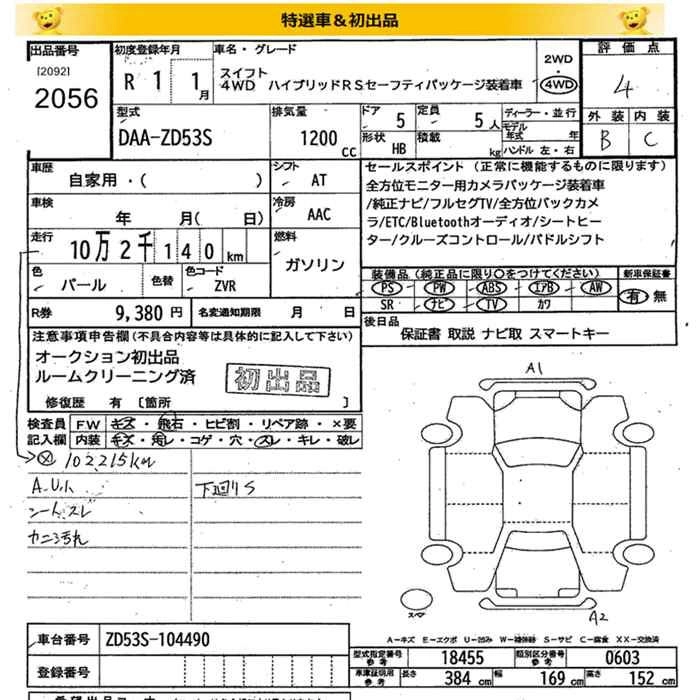 特選車＆初出品
出品番号
[2092]
2056
初度登録年月
R 1 1月
車名・グレード
スイフト
4WD ハイブリッドRSセーフティパッケージ装着車
2WD
・
4WD
評価点
4
外装 内装
B C
型式
DAA-ZD53S
排気量
1200 cc
ドア 5
形状 HB
定員 5人
積載 kg
ディーラー・並行
モデル年式 年
ハンドル 左・右
車歴
自家用・( )
シフト
AT
車検
年 月( 日)
冷房
AAC
走行
10万2千140km
燃料
ガソリン
色
パール
色替
色コード
ZVR
R券 9,380円
名変通知期限 月 日
セールスポイント (正常に機能するものに限ります)
全方位モニター用カメラパッケージ装着車
/純正ナビ/フルセグTV/全方位バックカメ
ラ/ETC/Bluetoothオーディオ/シートヒー
ター/クルーズコントロール/パドルシフト
装備品(純正品に限り○をつけてください)
PS PW ABS エアB AW
SR ナビ TV カワ
新車保証書
有 無
後日品
保証書 取説 ナビ取 スマートキー
注意事項申告欄(不具合内容等は具体的に記入して下さい)
オークション初出品
ルームクリーニング済
初出品
修復歴 有 〔箇所 〕
検査員記入欄
FW キズ・飛石・ヒビ割・リペア跡・×要
内装 キズ・汚レ・コゲ・穴・スレ・キレ・破レ
ⓧ 102215km
下回りS
シートスレ
A1
A2
スペア
A-キズ E-エクボ U-凹み W-補修跡 S-サビ C-腐食 XX-交換済
車台番号 ZD53S-104490
登録番号
型式指定番号 参考 18455
類別区分番号 参考 0603
車庫証明用 参考 長さ 384 cm 幅 169 cm 高さ 152 cm